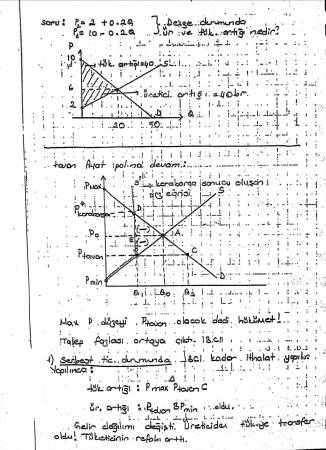 soru: Ps = 2 + 0.2Q } Denge durumunda
Pd = 10 - 0.2Q } ür. ve tük. artığı nedir?
P
10
tük. artığı: 40
S
6
üretici artığı = 40 br.
2
D
20
50
Q
tavan fiyat politikası devamı:
Pmax
S' karaborsa sonucu oluşan
arz eğrisi
S
P karaborsa
B
P0
A
P tavan
C
Pmin
D
Q1
Q0
Q2
Max P düzeyi Ptavan olacak dedi hükümet!
Talep fazlası ortaya çıktı. |BC|
1) Serbest tic. durumunda |BC| kadar ithalat yapılır.
Yapılınca:
tük. artığı : Pmax Ptavan C
ür. artığı : Ptavan B Pmin oldu.
Gelir dağılımı değişti. Üreticiden tük.ye transfer
oldu! Tüketicinin refahı arttı.